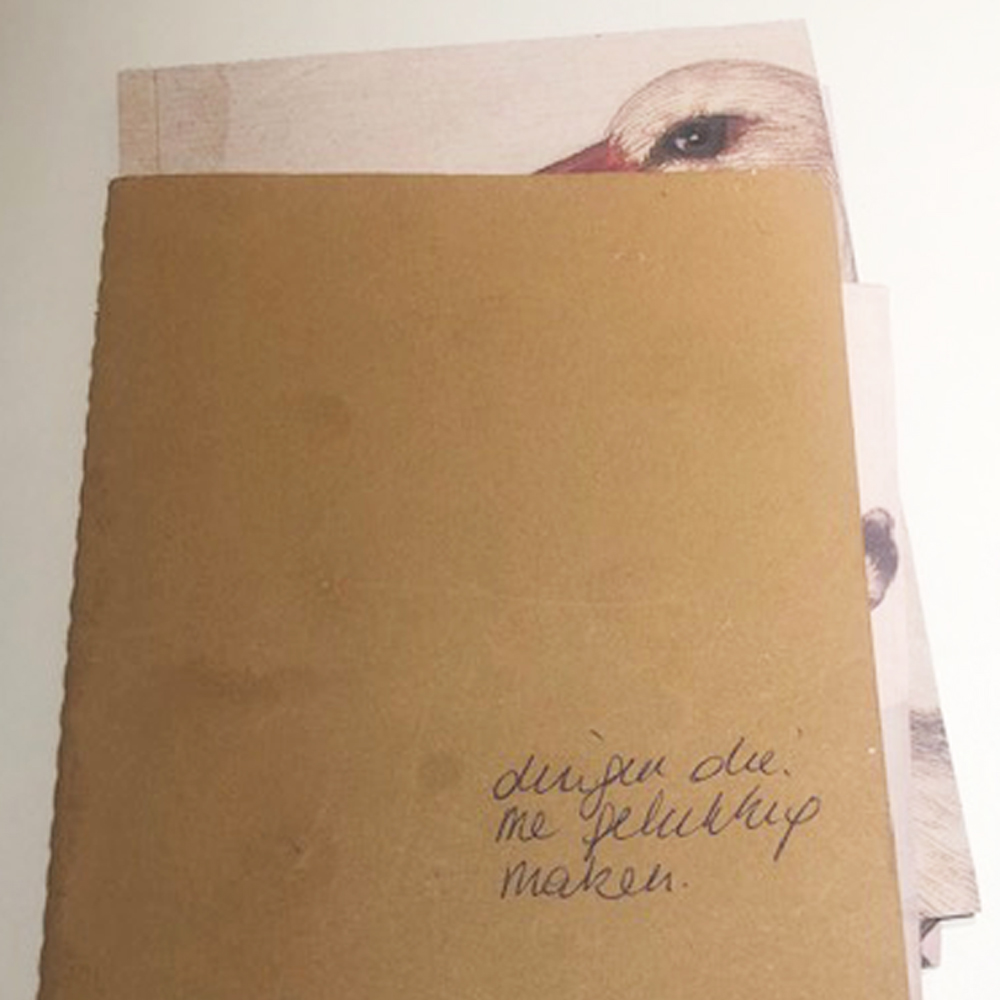 dingen die
me gelukkig
maken.